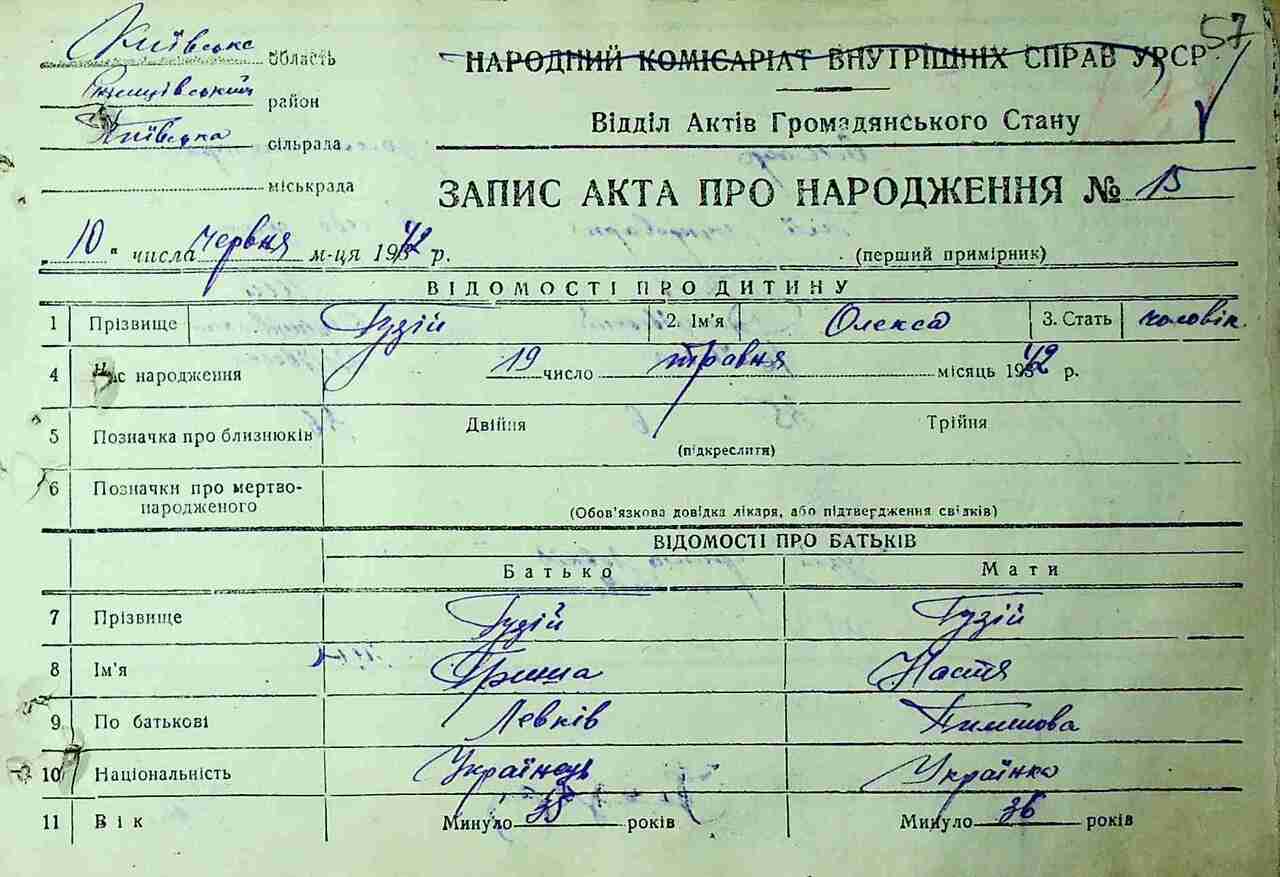 57
Київська область
район
сільрада
міськрада
НАРОДНИЙ КОМІСАРІАТ ВНУТРІШНІХ СПРАВ УРСР
Відділ Актів Громадянського Стану
ЗАПИС АКТА ПРО НАРОДЖЕННЯ № 15
„10“ числа червня м-ця 1942 р.
(перший примірник)
ВІДОМОСТІ ПРО ДИТИНУ
1 Прізвище Гузій 2. Ім'я Олекса 3. Стать чоловік.
4 Час народження 19 число травня місяць 1942 р.
5 Позначка про близнюків Двійня Трійня
(підкреслити)
6 Позначки про мертво-
народженого
(Обов'язкова довідка лікаря, або підтвердження свідків)
ВІДОМОСТІ ПРО БАТЬКІВ
Батько Мати
7 Прізвище Гузій Гузій
8 Ім'я Гриша Настя
9 По батькові Левків
10 Національність Українець Українка
11 Вік Минуло 35 років Минуло 36 років